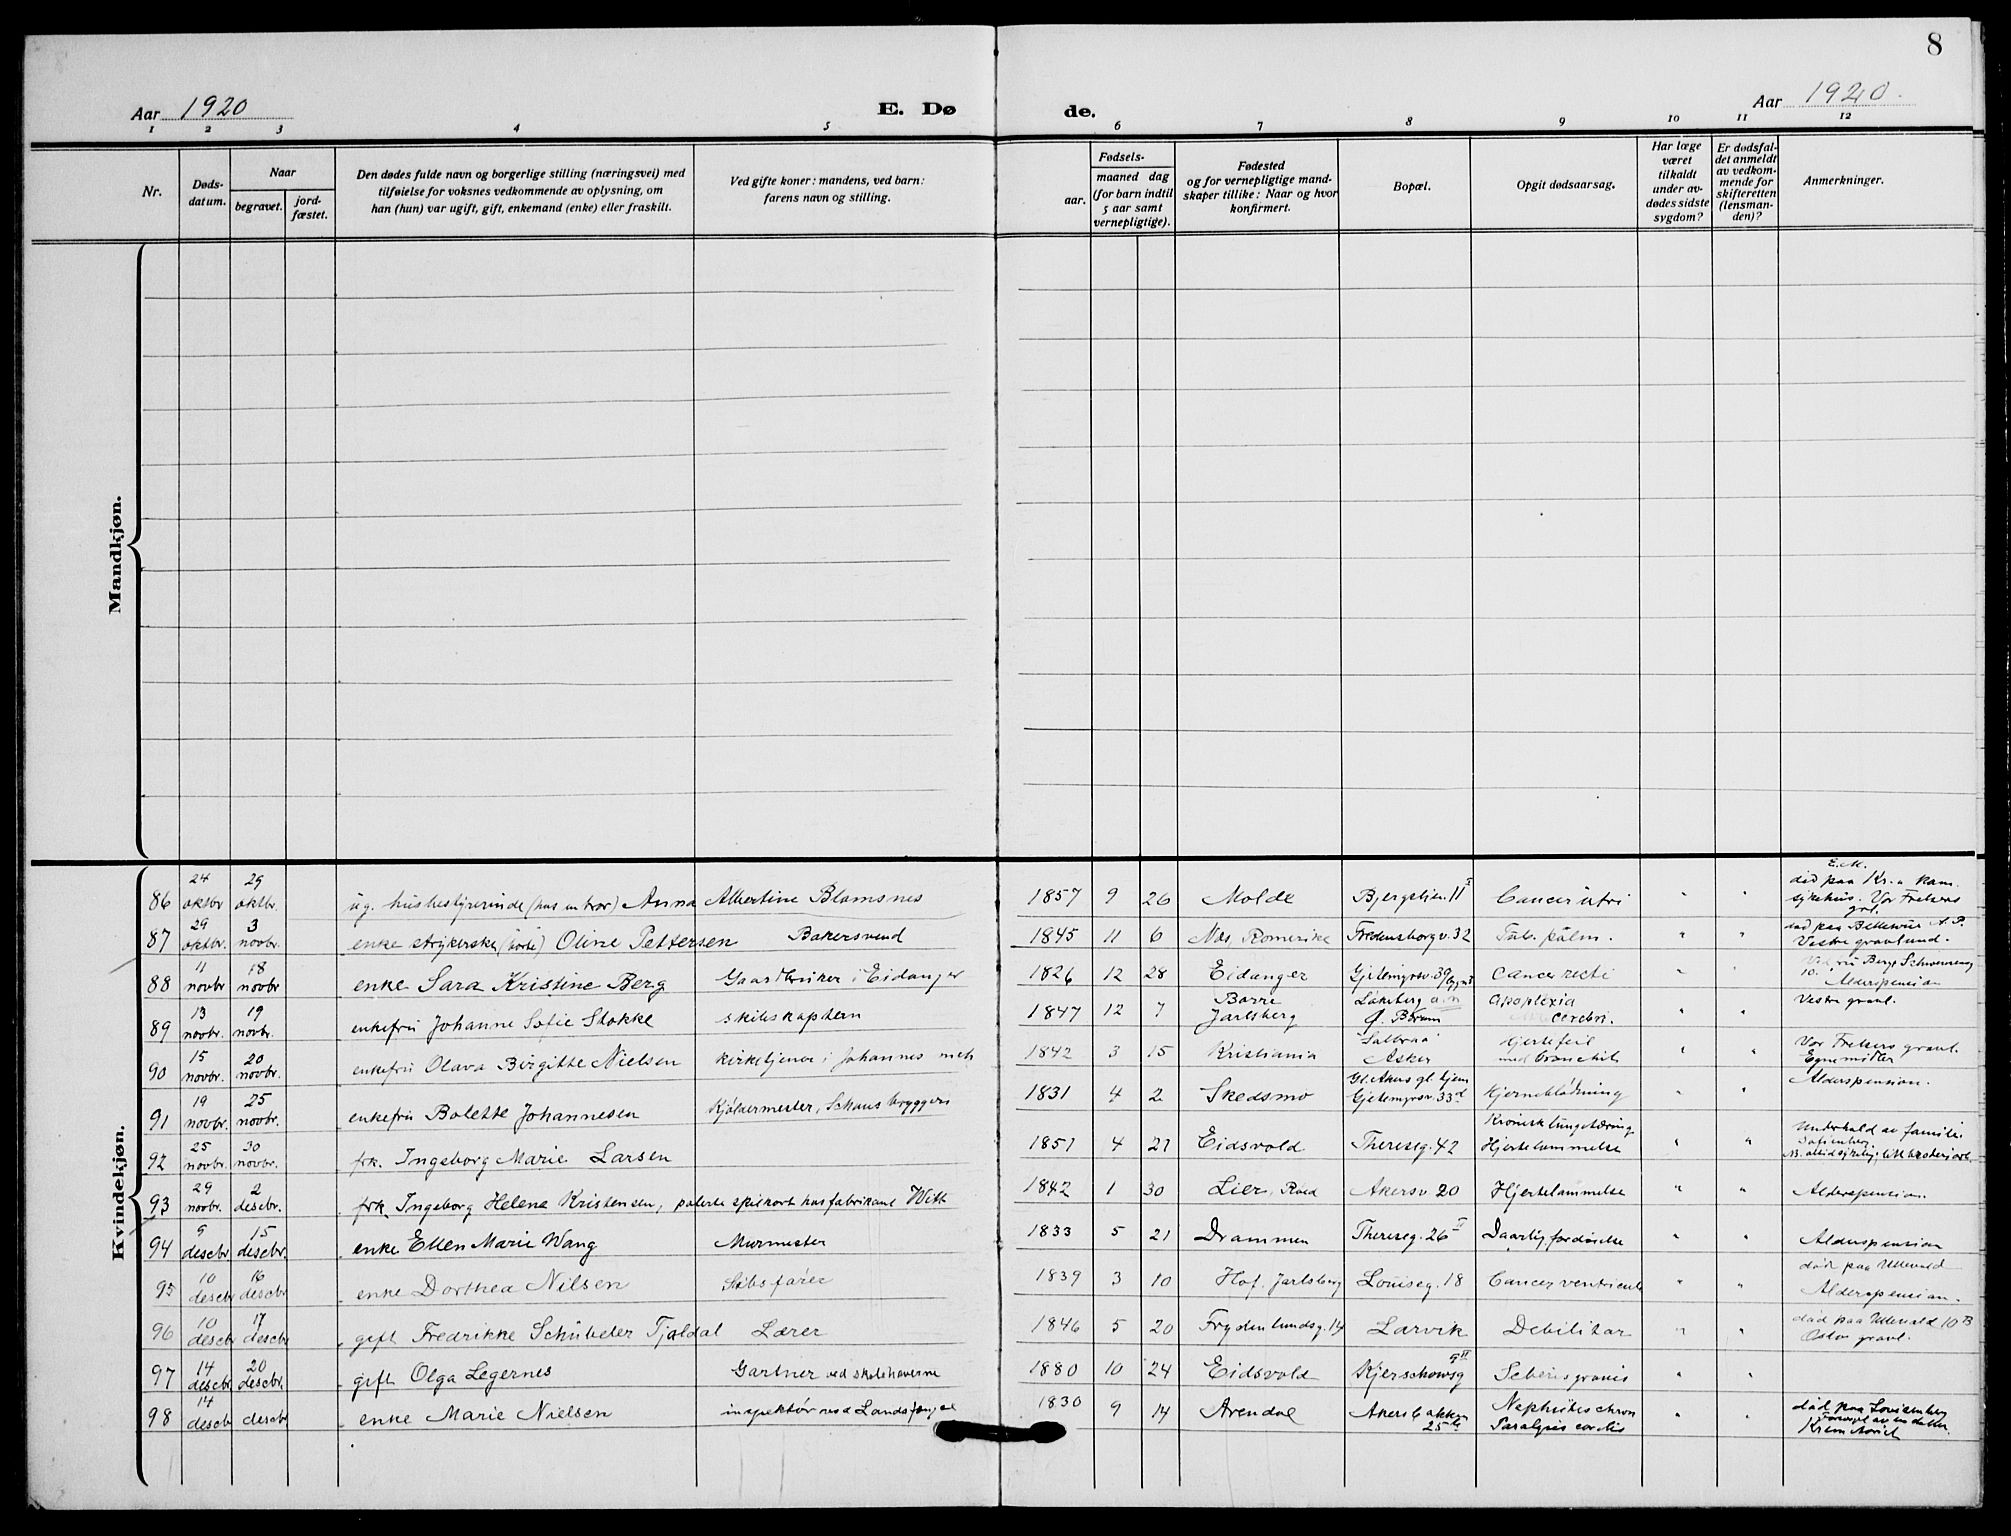 8
Aar 1920
E. Dø
de.
Aar 1920.
1 2 3 4 5 6 7 8 9 10 11 12
Nr.
Døds-
datum.
Naar
begravet.
jord-
fæstet.
Den dødes fulde navn og borgerlige stilling (næringsvei) med
tilføielse for voksnes vedkommende av oplysning, om
han (hun) var ugift, gift, enkemand (enke) eller fraskilt.
Ved gifte koner: mandens, ved barn:
farens navn og stilling.
Fødsels-
aar.
maaned dag
(for barn indtil
5 aar samt
vernepligtige).
Fødested
og for vernepligtige mand-
skaper tillike: Naar og hvor
konfirmert.
Bopæl.
Opgit dødsaarsag.
Har læge
været
tilkaldt
under av-
dødes sidste
sygdom?
Er dødsfal-
det anmeldt
av vedkom-
mende for
skifteretten
(lensman-
den)?
Anmerkninger.
Mandkjøn.
Kvindekjøn.
86 24 oktbr 29 oktbr. ug. husbestyrerinde Anna Albertine Blomsnes 1857 9 26 Molde Bjergstien 11 I Cancer utri " " E.M. død paa Kr.a kom. sykehus. Vor Frelsers grl.
87 29 oktbr. 3 novbr. enke strykerske Oline Pettersen Bakersvend 1845 11 6 Nes, Romerike Fredensborgv. 32 Tub. pulm. " " død paa Vestre gravlund.
88 11 novbr 18 novbr enke Sara Kristine Berg Gaardbruker i Eidanger 1826 12 28 Eidanger Gjetemyrsv. 39 Cancer recti " " Alderspension
89 13 novbr. 19 novbr. enkefru Johanne Sofie Stokke skibskaptein 1847 12 7 Borre Jarlsberg Ø. Bærum Apoplexia cerebri. " " Vestre gravl.
90 15 novbr. 20 novbr. enkefru Olava Birgitte Nielsen kirketjener i Johannes meh 1842 3 15 Kristiania Asker Hjertefeil med bronchit " " Vor Frelsers gravl. Egne midler
91 19 novbr. 25 novbr. enkefru Bolette Johannesen Kjøldermester, Schous bryggeri 1831 4 2 Skedsmo Gl. Akers gl. hjem Gjetemyrsv. 33 d Hjerneblødning " " Alderspension.
92 25 novbr. 30 novbr. frk. Ingeborg Marie Larsen 1851 4 21 Eidsvold Thereseg. 42 Kronisk lungetæring. Hjertelammelse " " Underhold av familie. Sofienberg.
93 29 novbr. 2 desebr. frk. Ingeborg Helene Kristensen, polerte spilkort hos fabrikant With 1842 1 30 Lier, Akersv. 20 Hjertelammelse " " Alderspension.
94 9 desebr. 15 desebr. enke Ellen Marie Wang Murmester 1833 5 21 Drammen Thereseg. 26 II Daarlig fordøielse " " Alderspension
95 10 desebr 16 desebr. enke Dorthea Nilsen Skibsfører 1839 3 10 Hof, Jarlsberg Louiseg. 18 Cancer ventriculi " " død paa Ullevaal Alderspension.
96 10 desebr 17 desebr gift Fredrikke Schübeler Tjaldal Lærer 1846 5 20 Frydenlundsg. 14 Larvik Debilitas " " død paa Ullevaal 10 B Oslo gravl.
97 14 desebr. 20 desebr. gift Olga Legernes Gartner ved skolehaverne 1880 10 24 Eidsvold Kjerschowsg 9 II gravis " "
98 14 desebr desebr enke Marie Nielsen inspektør ved Landsfængsel 1830 9 14 Arendal Akersbakken 25 Nephritis chron Paralysis cordis " " død paa Lovisenberg Krematoriet